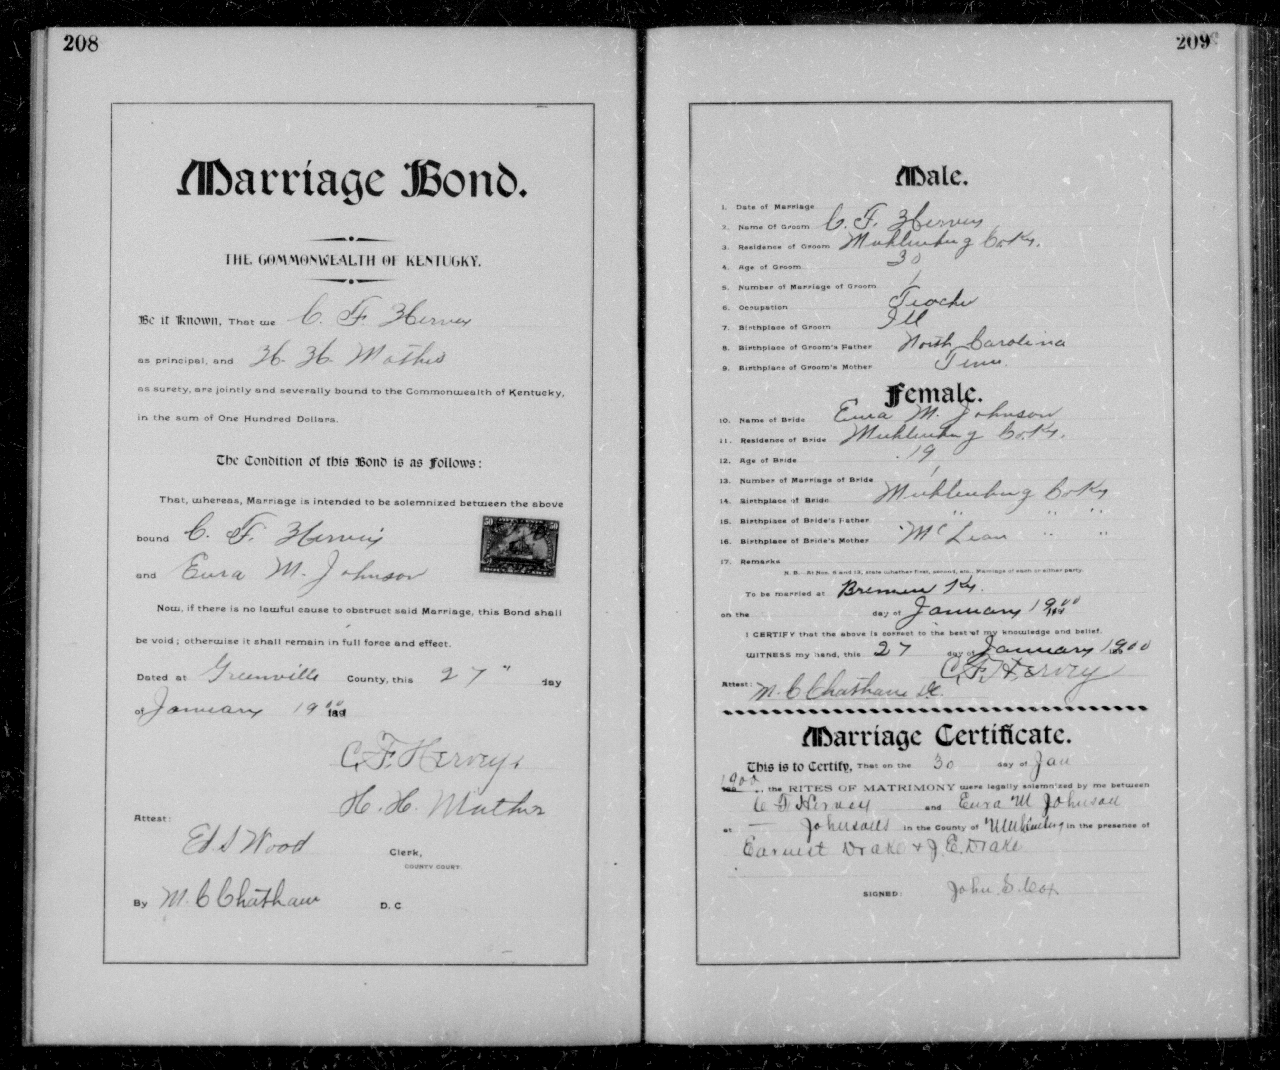 208
Marriage Bond.
THE COMMONWEALTH OF KENTUCKY.
Be it Known, That we C. F. Hervey
as principal, and H. H. Mather
as surety, are jointly and severally bound to the Commonwealth of Kentucky,
in the sum of One Hundred Dollars.
The Condition of this Bond is as Follows:
That, whereas, Marriage is intended to be solemnized between the above
bound C. F. Hervey
and Eura M. Johnson
Now, if there is no lawful cause to obstruct said Marriage, this Bond shall
be void; otherwise it shall remain in full force and effect.
Dated at Greenville County, this 27" day
of January 1900
C. F. Hervey
H. H. Mather
Attest:
Ed S Wood Clerk,
COUNTY COURT.
By M. C Chatham D. C
209
Male.
1. Date of Marriage
2. Name Of Groom C. F. Hervey
3. Residence of Groom Muhlenburg Co. Ky.
4. Age of Groom 30
5. Number of Marriage of Groom 1
6. Occupation Teacher
7. Birthplace of Groom Ill
8. Birthplace of Groom's Father North Carolina
9. Birthplace of Groom's Mother Tenn.
Female.
10. Name of Bride Eura M. Johnson
11. Residence of Bride Muhlenburg Co. Ky.
12. Age of Bride 19
13. Number of Marriage of Bride 1
14. Birthplace of Bride Muhlenburg Co Ky
15. Birthplace of Bride's Father " " "
16. Birthplace of Bride's Mother McLean " "
17. Remarks
N. B. At Nos. 5 and 13, state whether first, second, etc., Marriage of each or either party.
To be married at Bremen Ky.
on the day of January 1900
I CERTIFY that the above is correct to the best of my knowledge and belief.
WITNESS my hand, this 27 day of January 1900
C. F. Hervey
Attest: M. C Chatham D.C.
Marriage Certificate.
This is to Certify, That on the 30 day of Jan
1900, the RITES OF MATRIMONY were legally solemnized by me between
C F Hervey and Eura M Johnson
at — Johnsons in the County of Muhlenburg in the presence of
Earnest Drake & J. E. Drake
SIGNED: John S. Cox